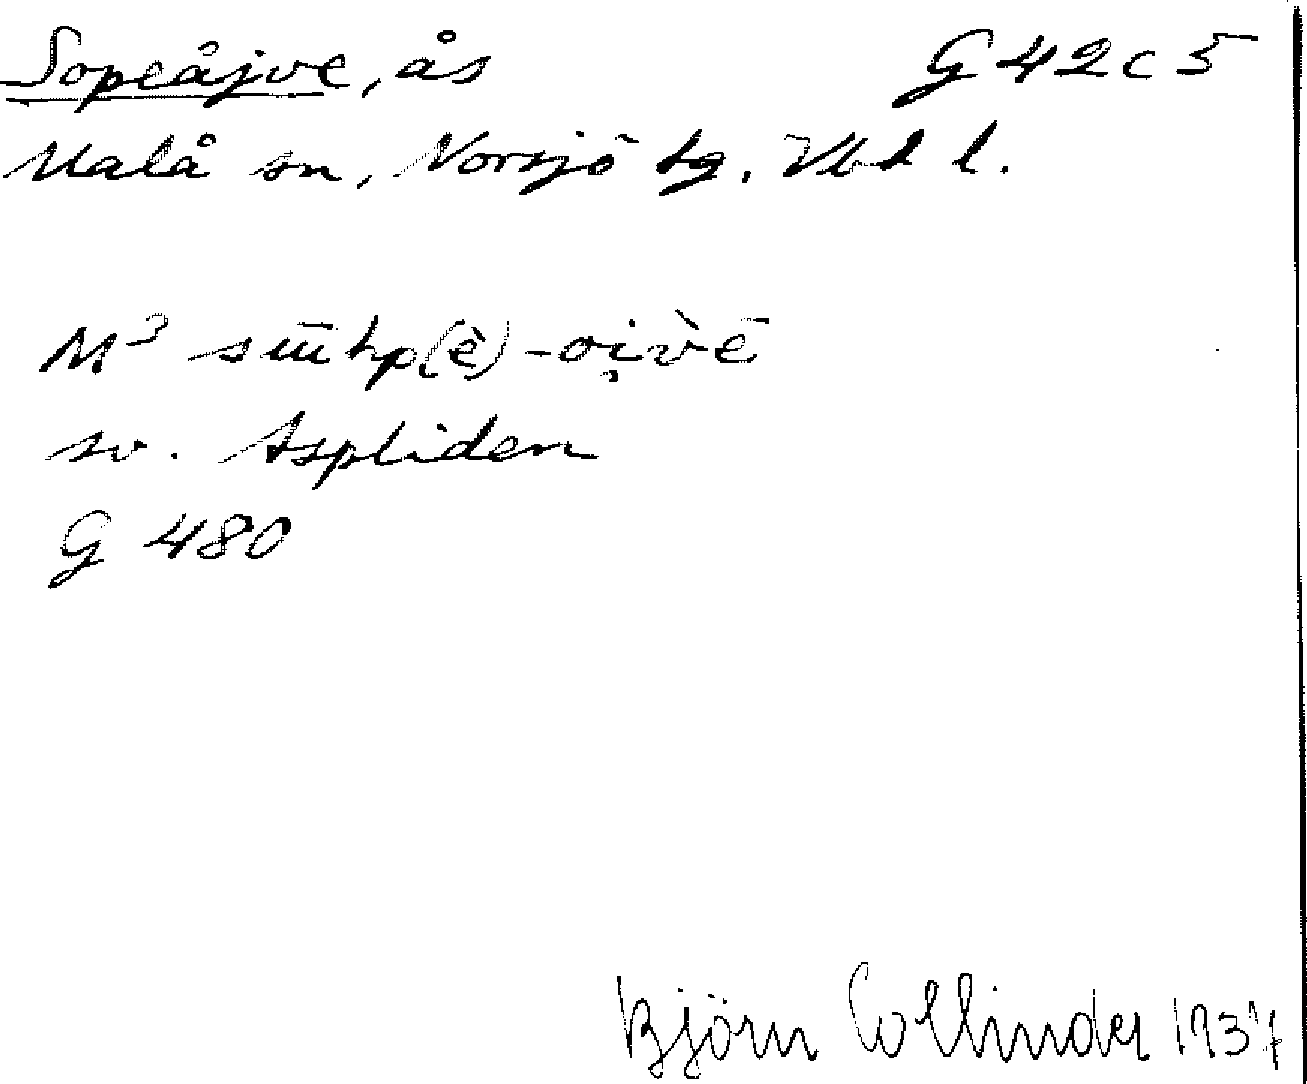 Sopeåjve, ås G 42 c 5
Malå sn, Norsjö tg. Vbd l.
M³ sɯ̄hp(è)-oi̜v̀ē
sv. Aspliden
G 480
Björn Collinder 1937